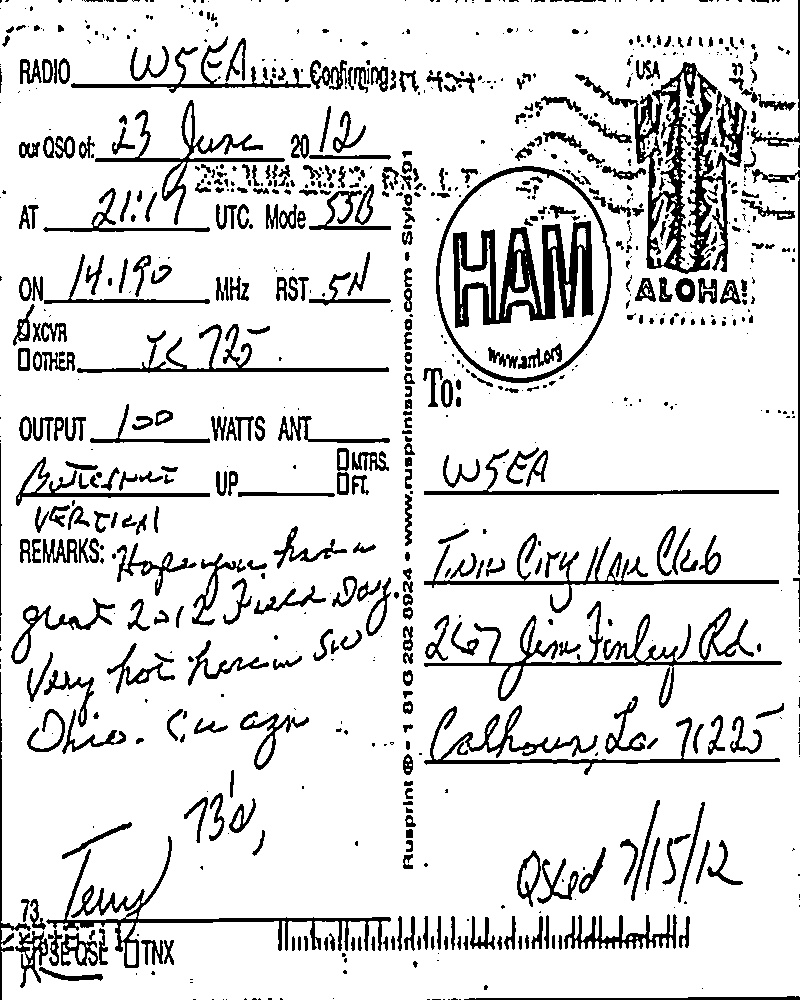 RADIO W5EA Confirming
our QSO of: 23 June 2012
AT 21:19 UTC. Mode SSB
ON 14.190 MHz RST 5N
XCVR
OTHER IC 725
OUTPUT 100 WATTS ANT
Butternut UP MTRS. FT.
VERTICAL
REMARKS: Hope you had a
great 2012 Field Day.
Very hot here in SW
Ohio. Cu agn
73's,
73, Terry
PSE QSL TNX
Rusprint ® - 1 816 282 8924 - www.rusprintsupreme.com - Style 201
USA
ALOHA!
HAM
www.arrl.org
To:
W5EA
Twin City Ham Club
267 Jim Finley Rd.
Calhoun, La 71225
QSLed 7/15/12